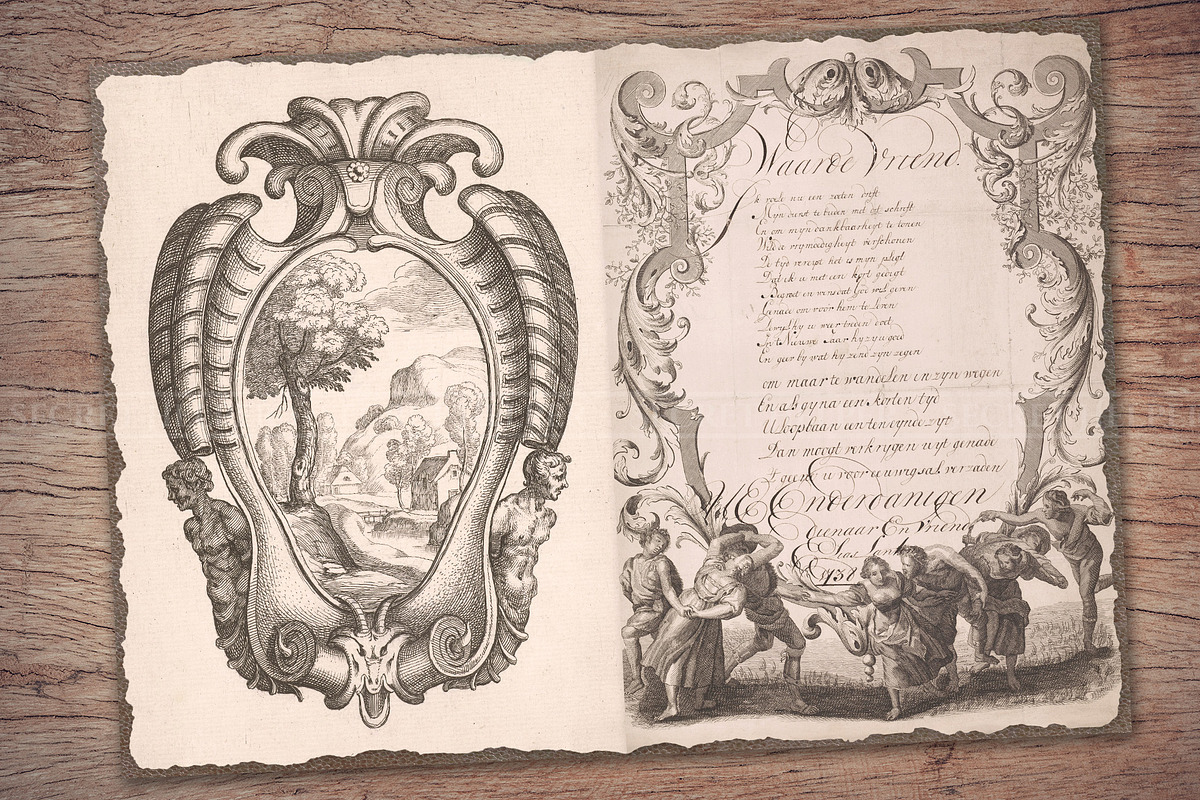 Waarde Vriend.
Ik voele nu een zoeten drift
Mijn dienst te bieden met dit schrift
En om myn dankbaarheyt te tonen
Wilde vrymoedigheyt verschonen
De tijd vereyst het is myn pligt
Dat ik u met een kort gedigt
Begroet en wens dat God wil geven
Genade om voor hem te Leven
Terwyl hy u weer treden doet
In't Nieuwe Jaar hy zy u goed
En geev by wat hy zend zyn zegen
om maar te wandelen in zyn wegen
En als gy na een korten tyd
U loopbaan eens ten eynde zyt
Dan moogt verkrygen uyt genade
't geen u voor eeuwig sal verzaden
UE Onderdanigen
dienaar En Vriend
Elias
1738